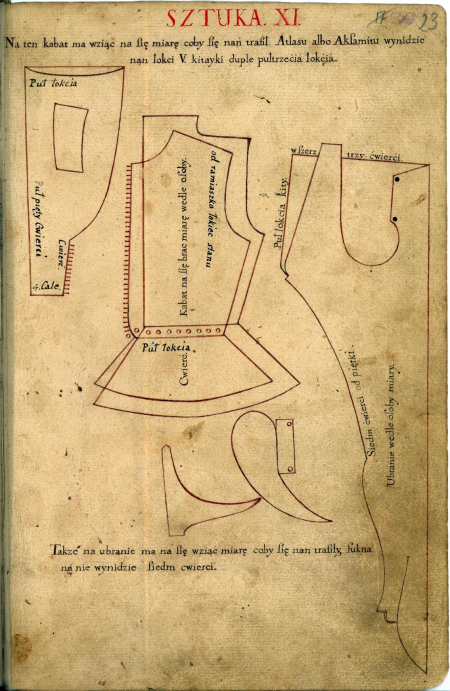 SZTUKA. XI.
23
Na ten kabat ma wziąć na się miarę coby się nań trafił Atlasu albo Aksamitu wynidzie
nań łokci V. kitayki duple pułtrzecia łokcia.
Puł łokcia
Puł pięty Ćwierci
Ćwierć.
4. Cale.
Kabat na się brac miarę wedle osoby.
od ramiaszka łokiec stanu
Puł łokcia.
Cwierc.
wszerz trzy ćwierci.
Puł łokcia kity.
Siedm cwierci od piętki.
Ubranie wedle osoby miary.
Także na ubranie ma na się wziąc miarę coby się nan trafiły, sukna
na nie wynidzie siedm cwierci.